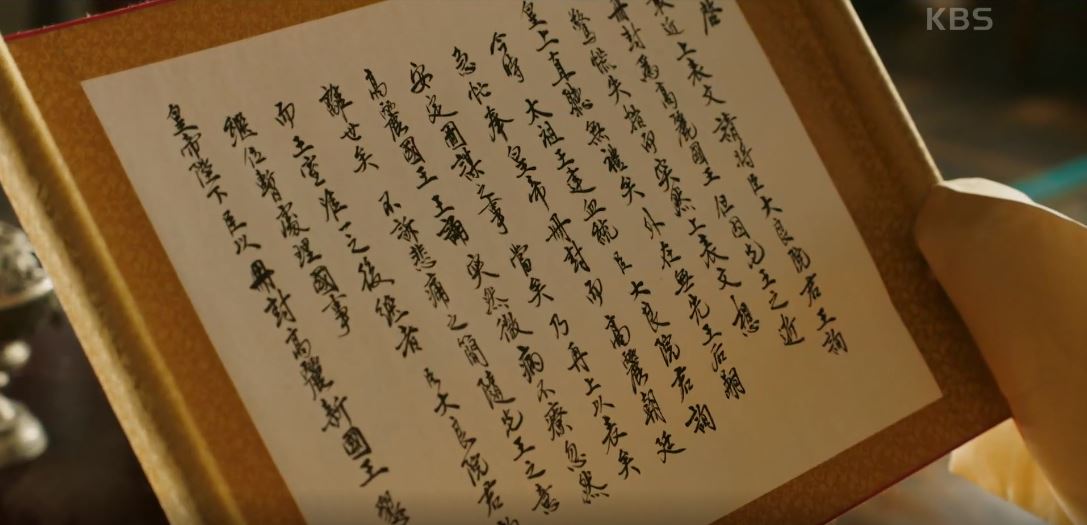 KBS
啓
近上表文 請持臣大良院君王詢
冊封爲高麗國王 但因先王之近
驚慌失措即突然上表文 想
皇上直聽無禮矣 外在無先王后嗣
今時 太祖王建血統 臣 大良院君詢
急忙奉 皇帝 冊封 而 高麗朝廷
安定圖謀之事 當矣 乃再上以表矣
高麗國王 王誦 突然微病不療忽然
世矣 不訴悲痛之間 隨先王之意
而王室唯一之後繼者 臣大良院君
繼位暫處理國事
皇帝陛下臣以冊封高麗新國王